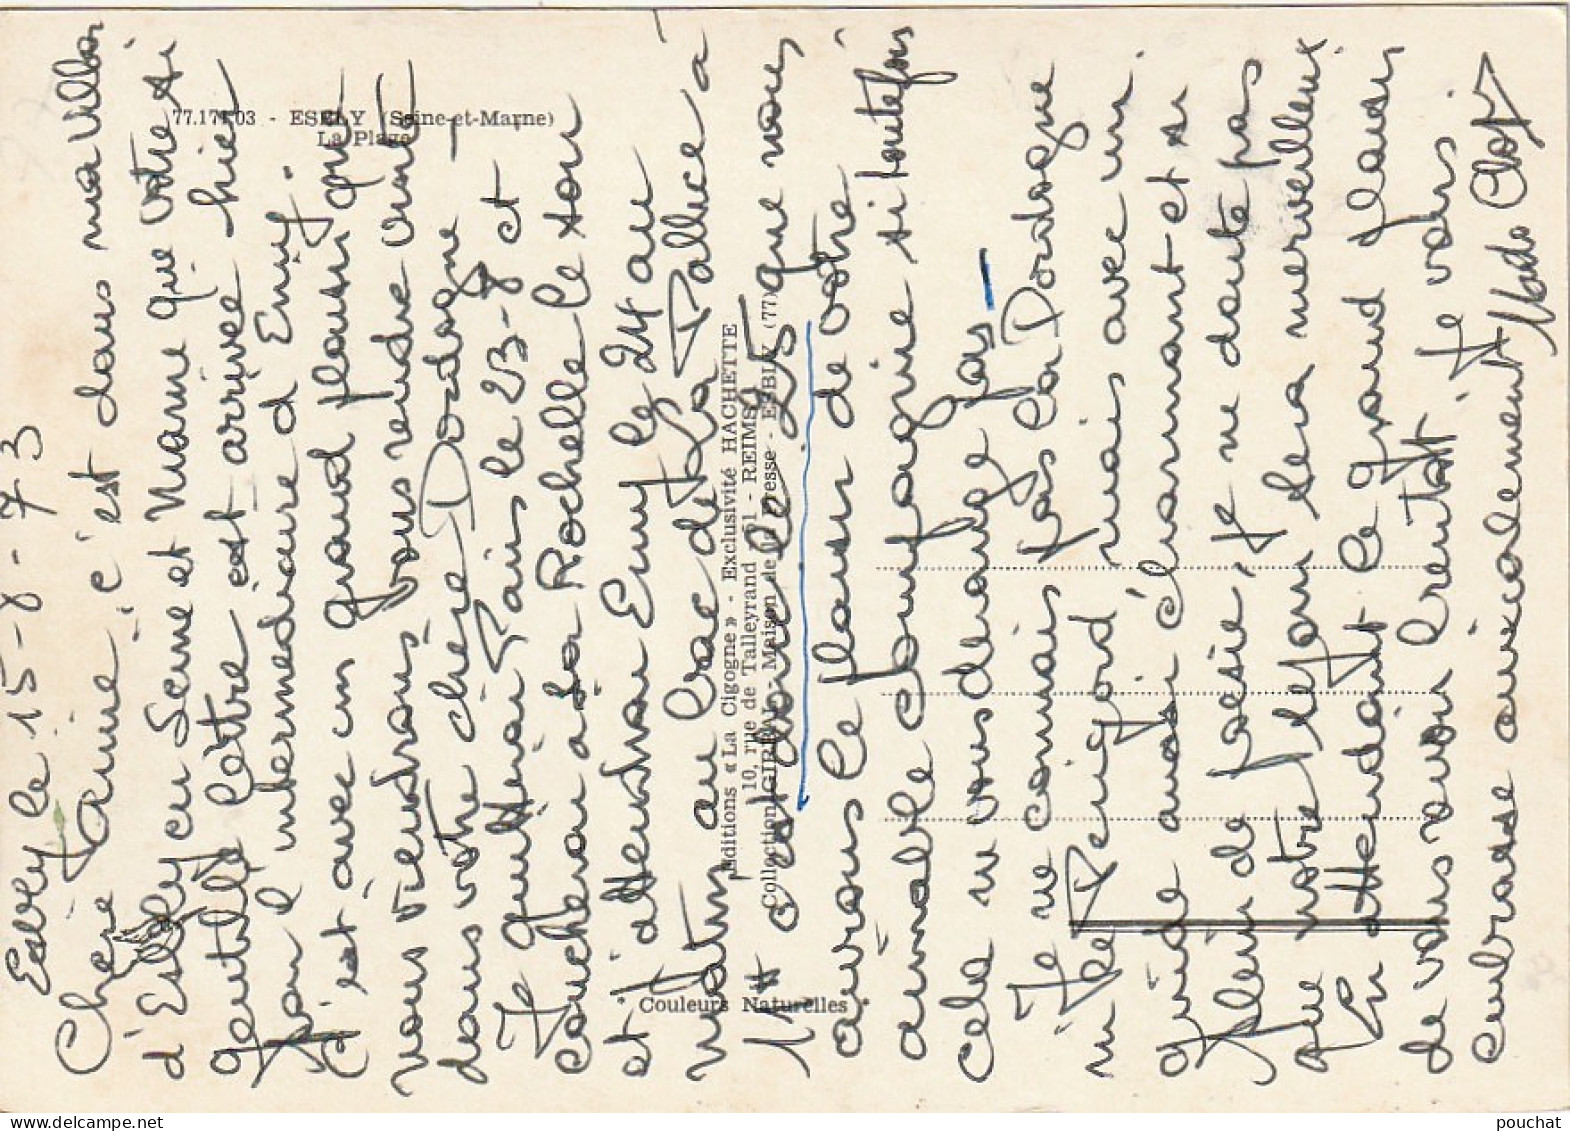 77.171.03 - ESBLY (Seine-et-Marne)
La Plage
Editions « La Cigogne » - Exclusivité HACHETTE
10, rue de Talleyrand - 51 - REIMS
Collection GIRBAL - Maison de la Presse - ESBLY (77)
* Couleurs Naturelles *
Esbly le 15-8-73
Chère Janine, c'est dans ma villa
d'Esbly en Seine et Marne que votre si
gentille lettre est arrivée hier
par l'intermédiaire d'Emy.
C'est avec un grand plaisir que
nous viendrons vous rendre visite
dans votre chère Dordogne —
Je quitterai Paris le 23-8 et
coucherai à La Rochelle le soir
et attendrai Emy le 24 au
matin au bac de La Pallice à
11 H
c'est donc le 25 que nous
aurons le plaisir de votre
aimable compagnie si toutefois
cela ne vous dérange pas —
Je ne connais pas la Dordogne
ni le Périgord, mais avec un
guide aussi charmant et si
plein de poésie, je ne doute pas
que notre séjour sera merveilleux
En attendant le grand plaisir
de vous revoir bientôt je vous
embrasse amicalement